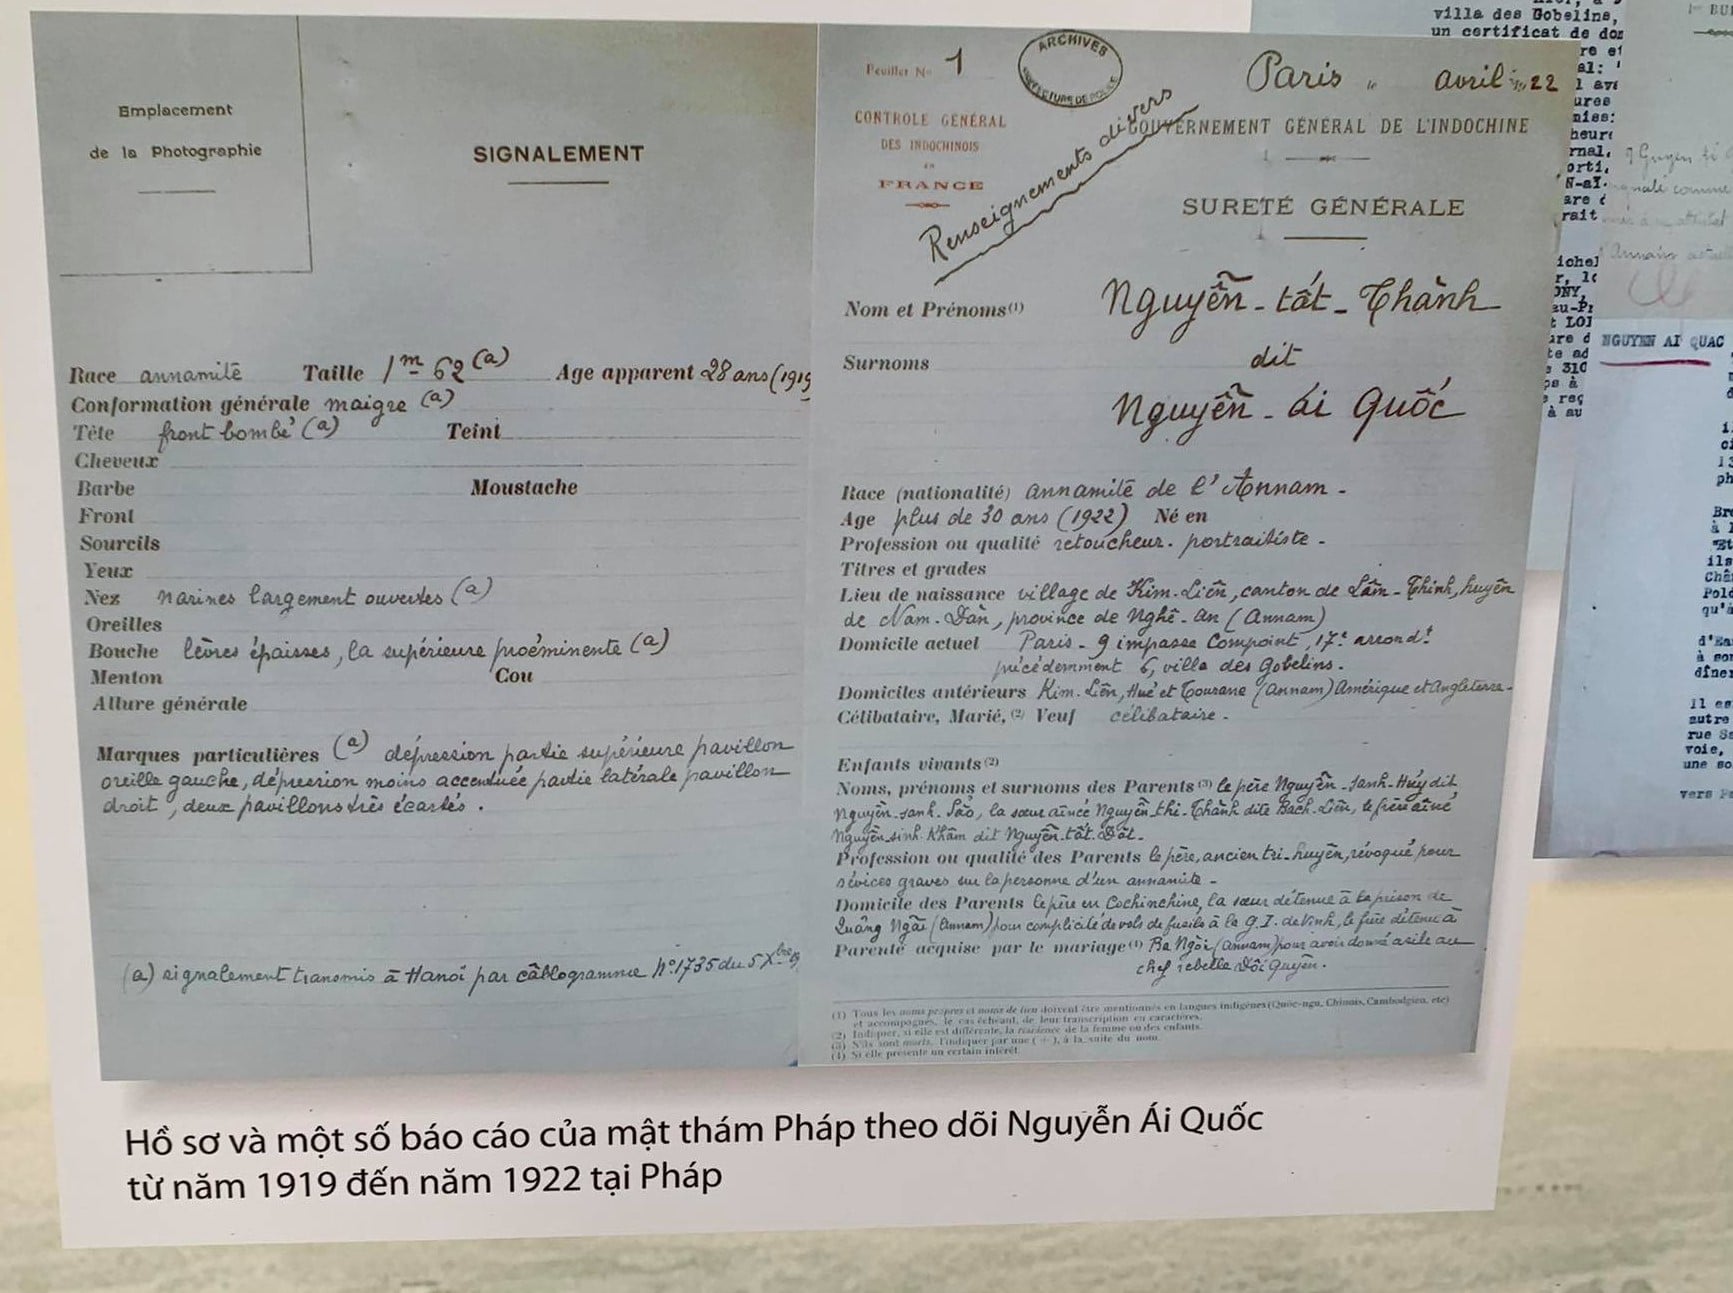 Emplacement
de la Photographie
SIGNALEMENT
Race annamite Taille 1m 62 (a) Age apparent 28 ans (1919
Conformation générale maigre (a)
Tête front bombé (a) Teint
Cheveux
Barbe Moustache
Front
Sourcils
Yeux
Nez narines largement ouvertes (a)
Oreilles
Bouche lèvres épaisses, la supérieure proéminente (a)
Menton Cou
Allure générale
Marques particulières (a) dépression partie supérieure pavillon
oreille gauche, dépression moins accentuée partie latérale pavillon
droit, deux pavillons très écartés.
(a) signalement transmis à Hanoï par câblogramme No 1735 du 5 Xbre 19
Feuillet No 1
ARCHIVES
PREFECTURE DE POLICE
Paris le avril 1922
CONTROLE GÉNÉRAL
DES INDOCHINOIS
en
FRANCE
Renseignements divers
GOUVERNEMENT GÉNÉRAL DE L'INDOCHINE
SURETÉ GÉNÉRALE
Nom et Prénoms (1) Nguyễn-tất-Thành
Surnoms dit
Nguyễn-ái Quốc
Race (nationalité) annamite de l'Annam -
Age plus de 30 ans (1922) Né en
Profession ou qualité retoucheur. portraitiste -
Titres et grades
Lieu de naissance village de Kim-Liên, canton de Lâm-Thinh, huyên
de Nam-Dàn, province de Nghê-An (Annam)
Domicile actuel Paris - 9 impasse Compoint, 17e arrondt
précédemment 6, villa des Gobelins.
Domiciles antérieurs Kim-Liên, Hué et Tourane (Annam) Amérique et Angleterre -
Célibataire, Marié, (2) Veuf célibataire -
Enfants vivants (2)
Noms, prénoms et surnoms des Parents (3) le père Nguyễn-sanh-Húy dit
Nguyễn-sanh-Sắc, la sœur aînée Nguyễn-thi-Thành dite Bach-Liên, le frère aîné
Nguyễn-sinh-Khâm dit Nguyễn-tất-Dật-
Profession ou qualité des Parents le père, ancien tri-huyên, révoqué pour
sévices graves sur la personne d'un annamite -
Domicile des Parents le père en Cochinchine, la sœur détenue à la prison de
Quảng Ngãi (Annam) pour complicité de vols de fusils à la G.I. de Vinh, le frère détenu à
Parenté acquise par le mariage (1) Ba Ngòi (Annam) pour avoir donné asile au
chef rebelle Dôi Quyên.
(1) Tous les noms propres et noms de lieu doivent être mentionnés en langues indigènes (Quôc-ngu, Chinois, Cambodgien, etc)
et accompagnés, le cas échéant, de leur transcription en caractères.
(2) Indiquer, si elle est différente, la résidence de la femme ou des enfants.
(3) S'ils sont morts, l'indiquer par une (+), à la suite du nom.
(4) Si elle présente un certain intérêt
villa des Gobelins,
un certificat de
NGUYEN AI QUAC
Hồ sơ và một số báo cáo của mật thám Pháp theo dõi Nguyễn Ái Quốc
từ năm 1919 đến năm 1922 tại Pháp